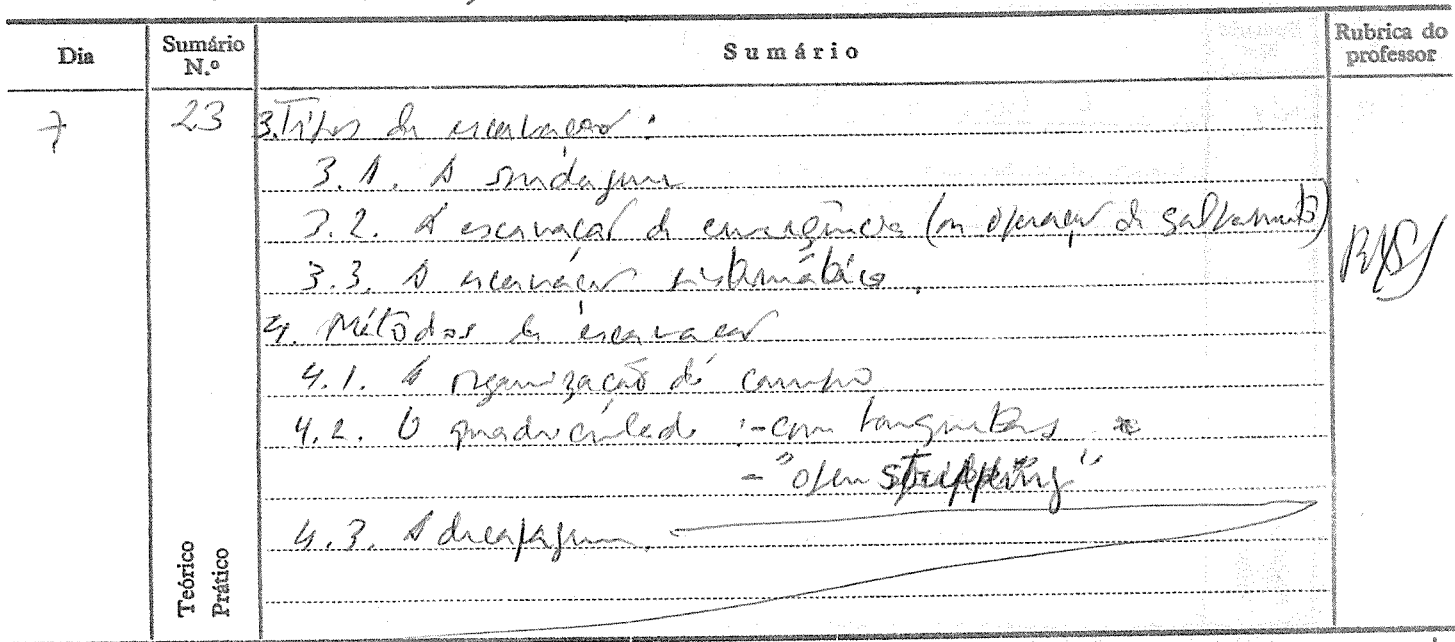 Dia
Sumário N.º
Sumário
Rubrica do professor
7
23
3. Tipos de escavação:
3.1. A sondagem
3.2. A escavação de emergência (ou operação de salvamento)
3.3. A escavação sistemática.
4. Métodos de escavação
4.1. A organização do campo
4.2. O quadriculado :- com banquetas
- "open stripping"
4.3. A decapagem.
Teórico
Prático